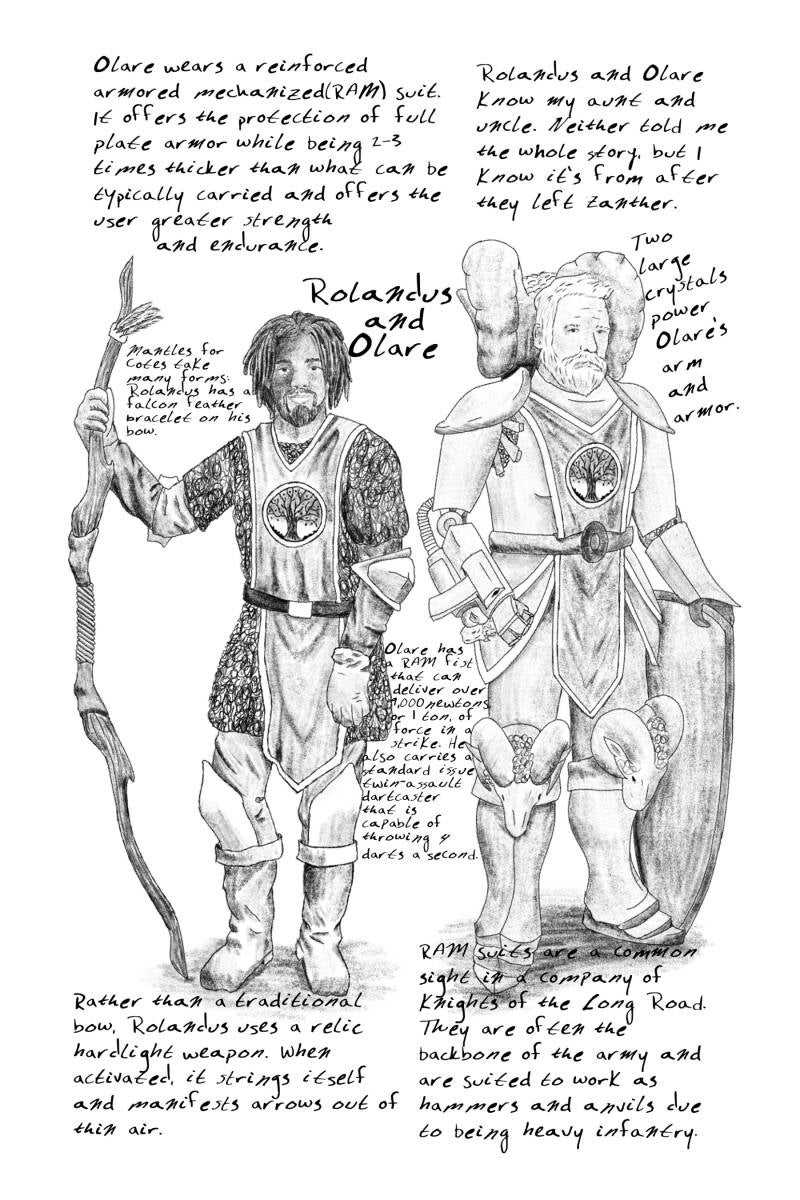 Olare wears a reinforced
armored mechanized(RAM) suit.
It offers the protection of full
plate armor while being 2-3
times thicker than what can be
typically carried and offers the
user greater strength
and endurance.
Rolandus and Olare
Know my aunt and
uncle. Neither told me
the whole story, but I
Know it's from after
they left Zanther.
Rolandus
and
Olare
Two
large
crystals
power
Olare's
arm
and
armor.
Mantles for
Cotes take
many forms:
Rolandus has a
falcon feather
bracelet on his
bow.
Olare has
a RAM fist
that can
deliver over
9,000 newtons
or 1 ton, of
force in a
strike. He
also carries a
standard issue
twin-assault
dartcaster
that is
capable of
throwing 4
darts a second.
Rather than a traditional
bow, Rolandus uses a relic
hardlight weapon. When
activated, it strings itself
and manifests arrows out of
thin air.
RAM suits are a common
sight in a company of
Knights of the Long Road.
They are often the
backbone of the army and
are suited to work as
hammers and anvils due
to being heavy infantry.